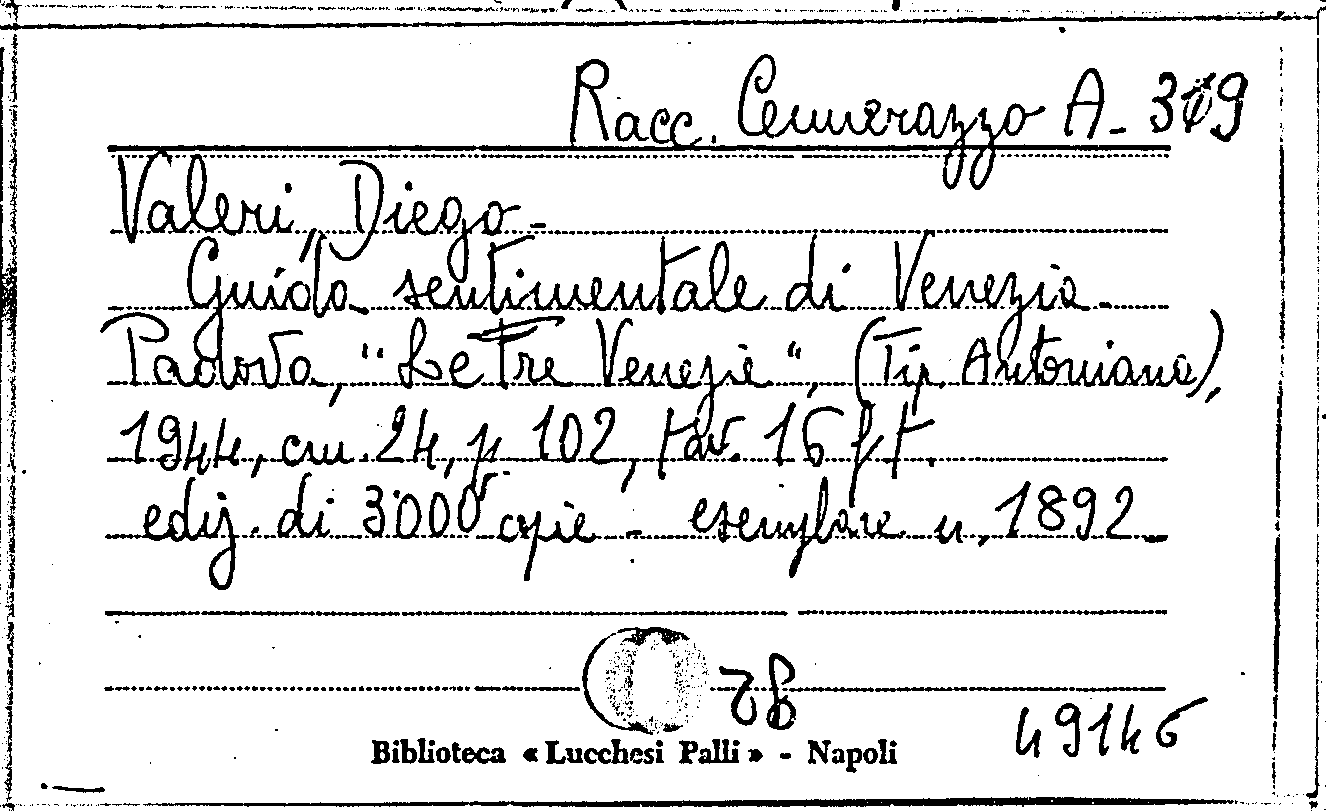 Racc. Cennerazzo A- 319
Valeri, Diego-
Guida sentimentale di Venezia-
Padova, "Le Tre Venezie", (Tip. Antoniana),
1944, cm. 24, p 102, tav. 16 f/t.
ediz. di 3000 copie - esemplare n. 1892-
ZB
49146
Biblioteca « Lucchesi Palli » - Napoli